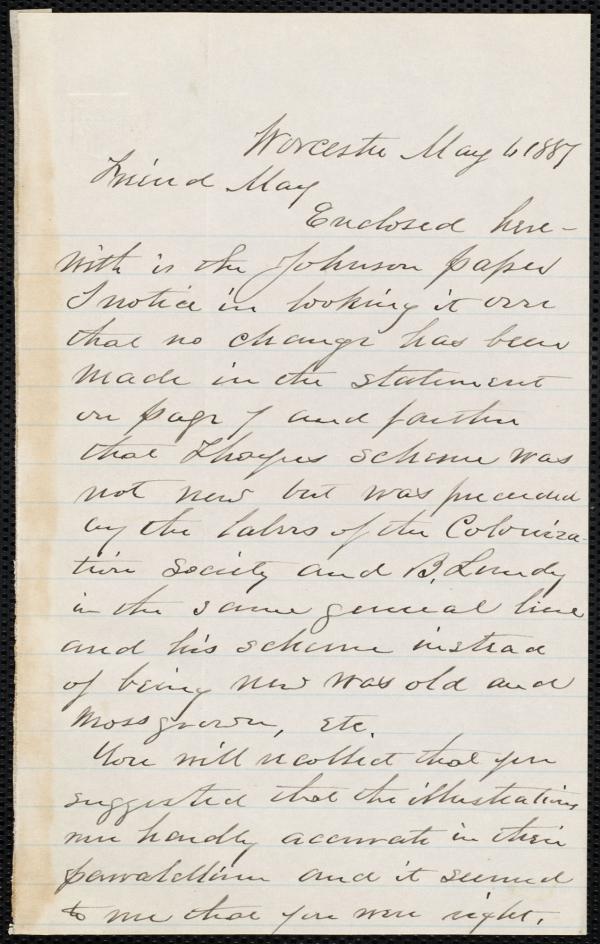 Worcester May 6 1887
Friend May
Enclosed here-
with is the Johnson paper
I notice in looking it over
that no change has been
made in the statement
on page 7 and farther
that Thayers scheme was
not new but was preceded
by the labors of the Coloniza-
tion Society and B. Lundy
in the same general line
and his scheme instead
of being new was old and
mossgrown, etc.
You will recollect that you
suggested that the illustrations
were hardly accurate in their
parallelism and it seemed
to me that you were right.